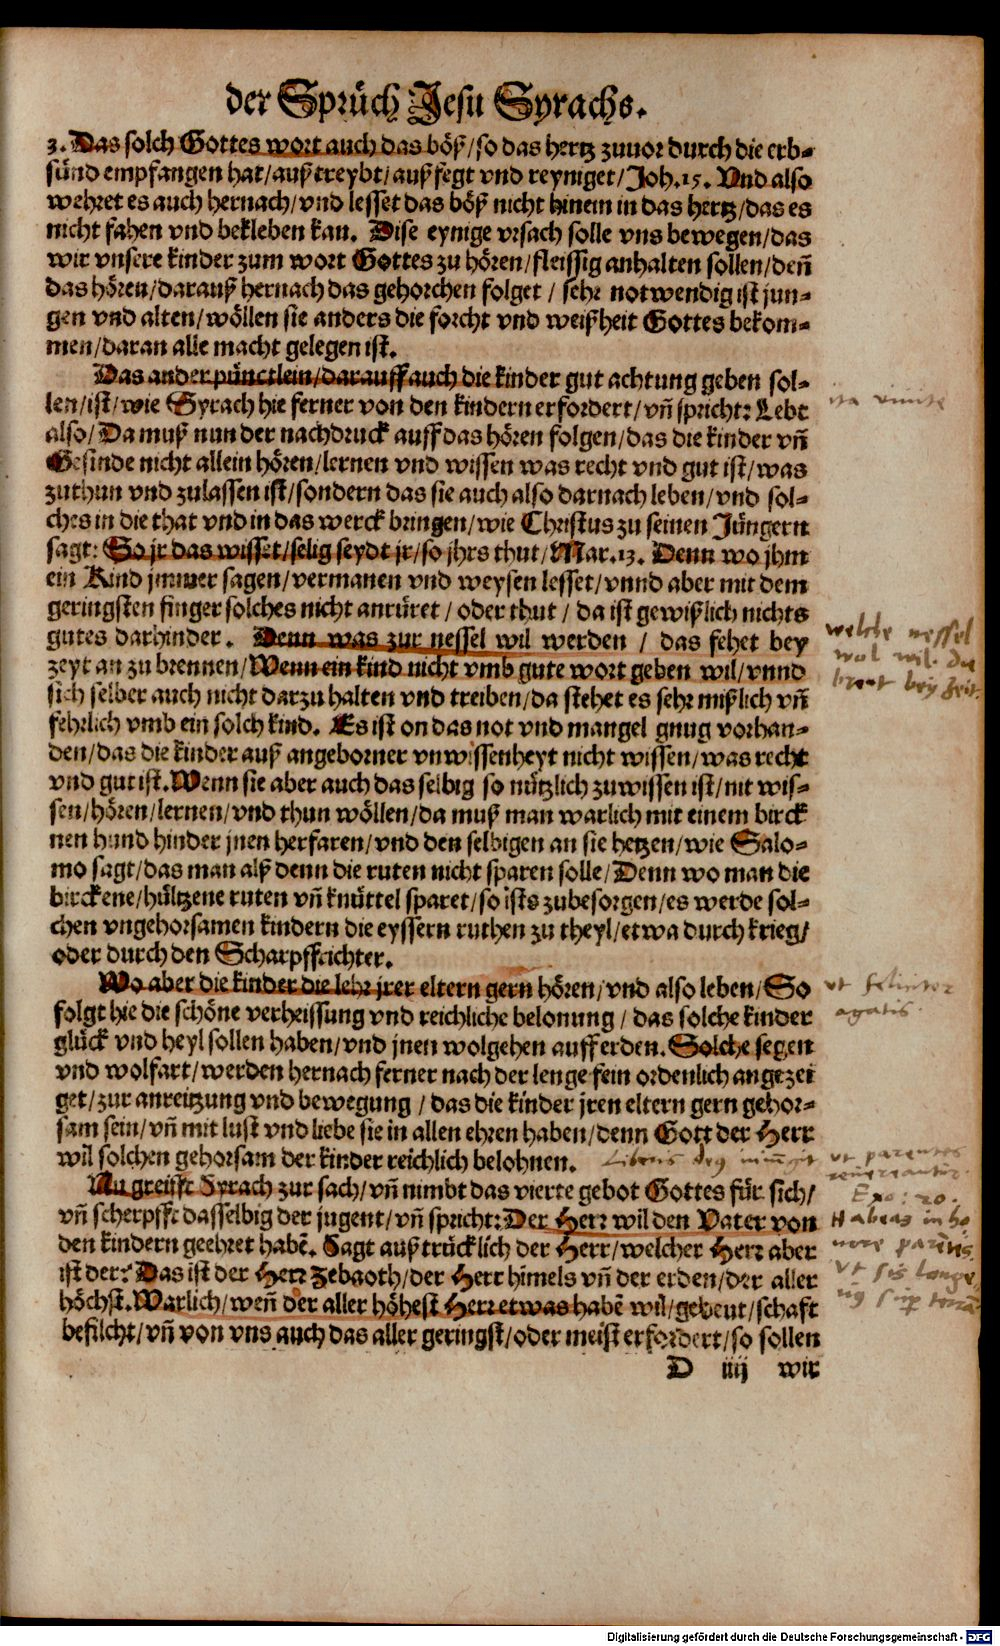 der Sprüch Jesu Syrachs.
3. Das solch Gottes wort auch das böß/so das hertz zuuor durch die erb-
sünd empfangen hat/außtreybt/außfegt vnd reyniget/Joh.15. Vnd also
wehret es auch hernach/vnd lesset das böß nicht hinein in das hertz/das es
nicht fahen vnd bekleben kan. Dise eynige vrsach solle vns bewegen/das
wir vnsere kinder zum wort Gottes zu hören/fleissig anhalten sollen/deñ
das hören/darauß hernach das gehorchen folget / sehr notwendig ist jun-
gen vnd alten/wöllen sie anders die forcht vnd weißheit Gottes bekom-
men/daran alle macht gelegen ist.
Das ander pünctlein/darauff auch die kinder gut achtung geben sol-
len/ist/wie Syrach hie ferner von den kindern erfordert/vñ spricht: Lebt
also/Da muß nun der nachdruck auff das hören folgen/das die kinder vñ
Gesinde nicht allein hören/lernen vnd wissen was recht vnd gut ist/was
zuthun vnd zulassen ist/sondern das sie auch also darnach leben/vnd sol-
ches in die that vnd in das werck bringen/wie Christus zu seinen Jüngern
sagt: So jr das wisset/selig seydt jr/so jhrs thut/Mar.13. Denn wo jhm
ein Kind jmmer sagen/vermanen vnd weysen lesset/vnnd aber mit dem
geringsten finger solches nicht anrüret / oder thut / da ist gewißlich nichts
gutes darhinder. Denn was zur nessel wil werden / das fehet bey
zeyt an zu brennen/Wenn ein kind nicht vmb gute wort geben wil/vnnd
sich selber auch nicht darzu halten vnd treiben/da stehet es sehr mißlich vñ
fehrlich vmb ein solch kind. Es ist on das not vnd mangel gnug vorhan-
den/das die kinder auß angeborner vnwissenheyt nicht wissen/was recht
vnd gut ist. Wenn sie aber auch das selbig so nützlich zuwissen ist/nit wis-
sen/hören/lernen/vnd thun wöllen/da muß man warlich mit einem birck
nen hund hinder jnen herfaren/vnd den selbigen an sie hetzen/wie Salo-
mo sagt/das man alß denn die ruten nicht sparen solle/Denn wo man die
birckene/hültzene ruten vñ knüttel sparet/so ists zubesorgen/es werde sol-
chen vngehorsamen kindern die eyssern ruthen zu theyl/etwa durch krieg/
oder durch den Scharpffrichter.
Wo aber die kinder die lehr jrer eltern gern hören/vnd also leben/So
folgt hie die schöne verheissung vnd reichliche belonung / das solche kinder
glück vnd heyl sollen haben/vnd jnen wolgehen auff erden. Solche segen
vnd wolfart/werden hernach ferner nach der lenge fein ordenlich angezei
get/zur anreitzung vnd bewegung / das die kinder jren eltern gern gehor-
sam sein/vñ mit lust vnd liebe sie in allen ehren haben/denn Gott der Herr
wil solchen gehorsam der kinder reichlich belohnen.
Nu greifft Syrach zur sach/vñ nimbt das vierte gebot Gottes für sich/
vñ scherpfft dasselbig der jugent/vñ spricht: Der Herr wil den Vater von
den kindern geehret habē. Sagt außtrücklich der Herr/welcher Herr aber
ist der? Das ist der Herr Zebaoth/der Herr himels vñ der erden/der aller
höchst. Warlich/weñ der aller höhest Herr etwas habē wil/gebeut/schaft
befilcht/vñ von vns auch das aller geringst/oder meist erfordert/so sollen
D iiij wir
ita vivite
welche nessel
wol wil. da
brent bey Zeit.
ut feliciter
agatis.
ut parentes
reuereantur.
Exo: 20.
Habeas in ho
nore parentes
Vt sis
Digitalisierung gefördert durch die Deutsche Forschungsgemeinschaft - DFG